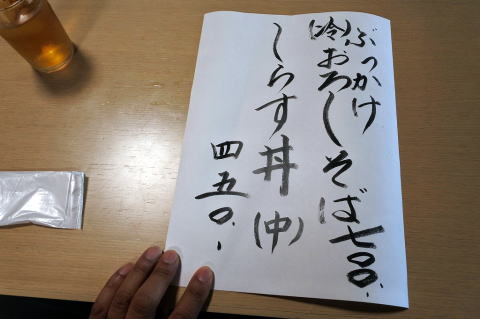 ぶっかけ
(冷)おろしそば七〇〇、
しらす丼(中)
四五〇、